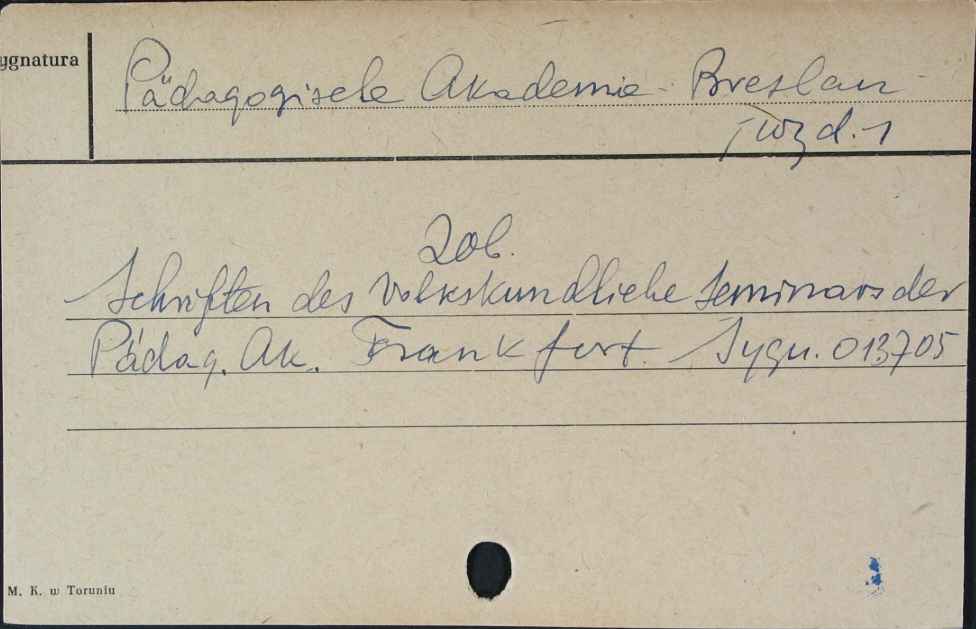 ygnatura
Pädagogische Akademie Breslau
d. 1
Zob.
Schriften des Volkskundliche Seminars der
Pädag. Ak. Frankfurt. Sygn. 013705
M. K. w Toruniu